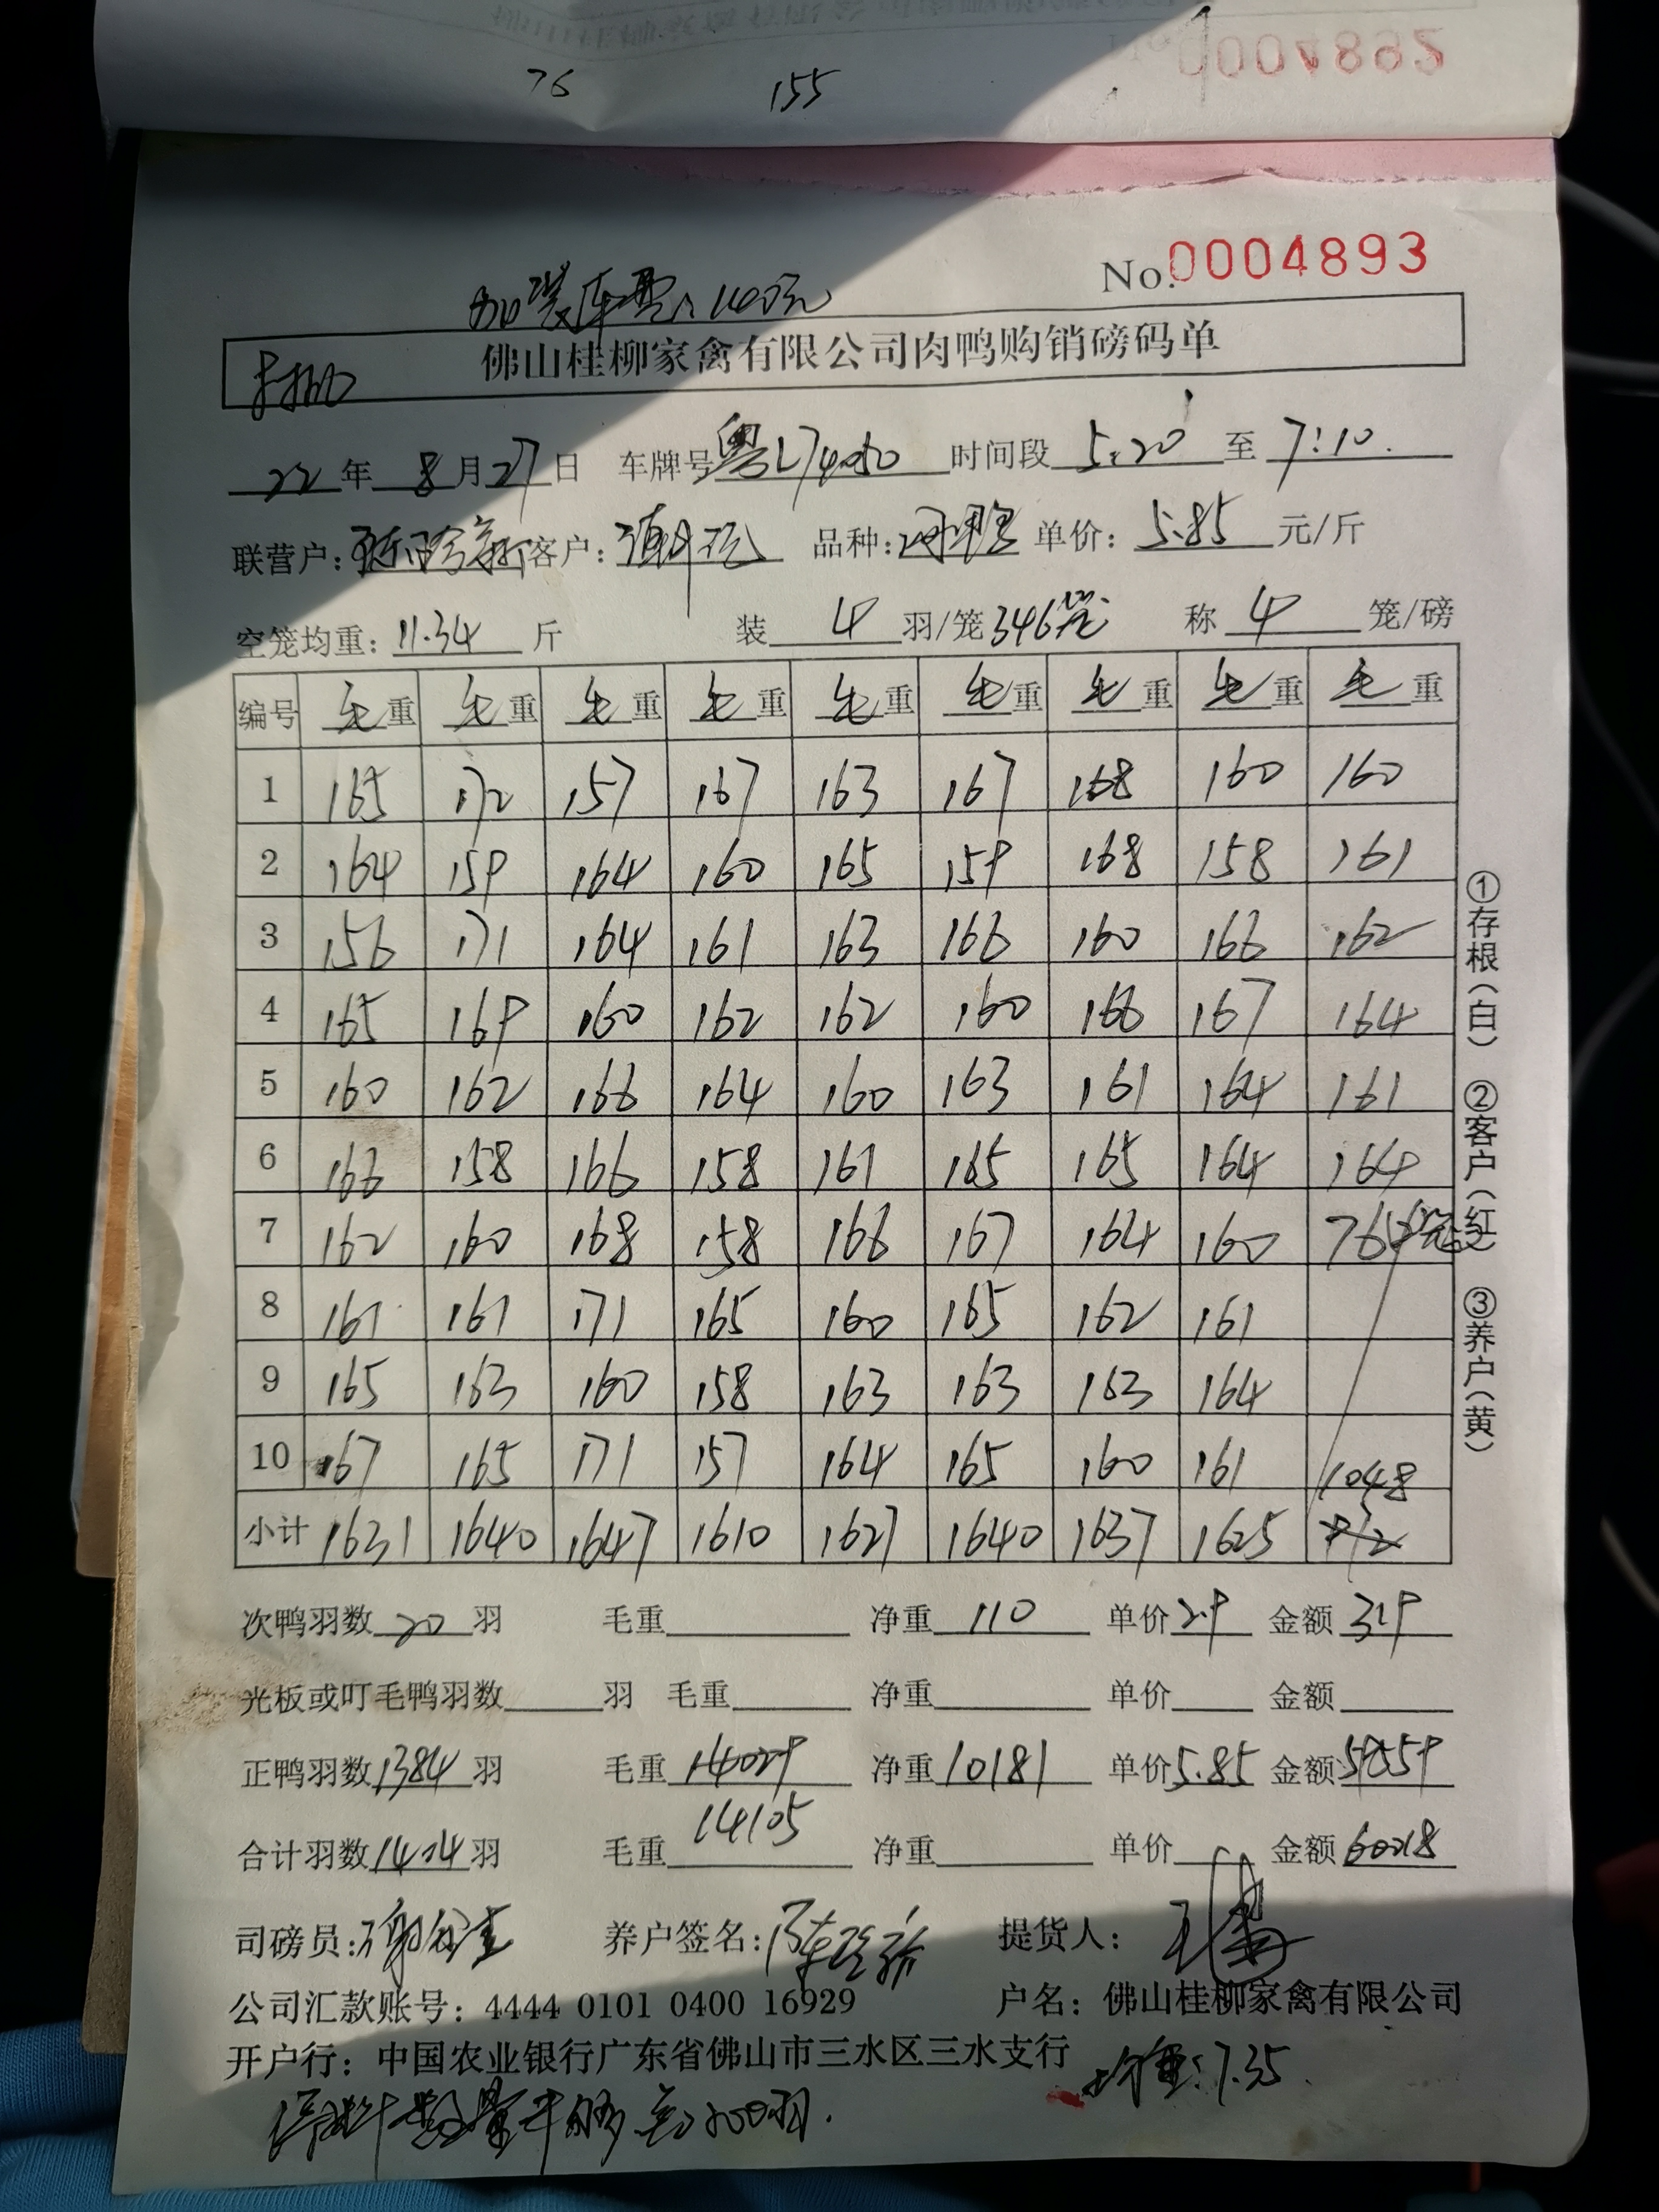 76 155
No.0004893
加装车费:140元
佛山桂柳家禽有限公司肉鸭购销磅码单
22年8月27日 车牌号粤L74050 时间段5:20至7:10.
联营户: 客户: 品种: 单价:5.85元/斤
空笼均重:11.34斤 装4羽/笼346笼 称4笼/磅
编号 毛重 毛重 毛重 毛重 毛重 毛重 毛重 毛重 毛重
1 165 172 157 167 163 167 168 160 160
2 164 159 164 160 165 159 168 158 161
3 156 171 164 161 163 166 160 166 162
4 165 169 160 162 162 160 166 167 164
5 160 162 166 164 160 163 161 164 161
6 166 158 166 158 161 165 165 164 164
7 162 160 168 158 166 167 164 160 76
8 161 161 171 165 160 165 162 161
9 165 163 160 158 163 163 163 164
10 167 165 171 157 164 165 160 161 1048
小计 1631 1640 1647 1610 1627 1640 1637 1625
次鸭羽数20羽 毛重 净重110 单价2.9 金额319
光板或叮毛鸭羽数 羽 毛重 净重 单价 金额
正鸭羽数1384羽 毛重14029 净重10181 单价5.85 金额59559
合计羽数1404羽 毛重14105 净重 单价 金额60018
司磅员: 养户签名: 提货人:
公司汇款账号:4444 0101 0400 16929 户名:佛山桂柳家禽有限公司
开户行:中国农业银行广东省佛山市三水区三水支行
均重:7.35
①存根(白) ②客户(红) ③养户(黄)